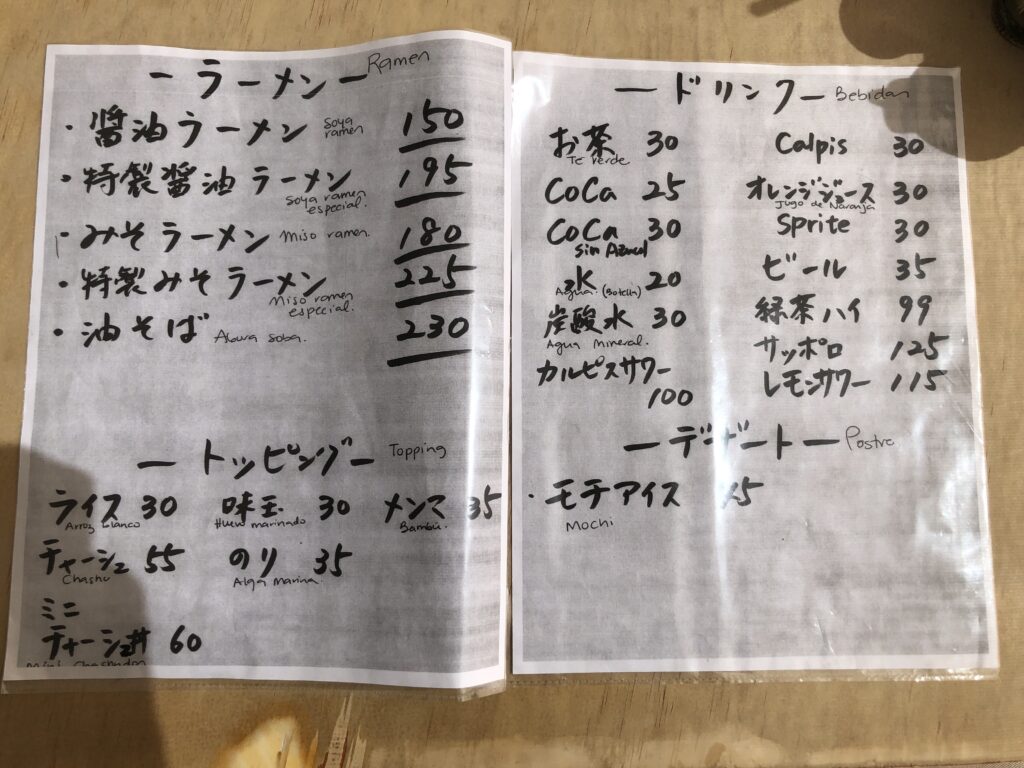 ー ラーメン ー Ramen
・醤油ラーメン Soya ramen 150
・特製醤油ラーメン Soya ramen especial. 195
・みそラーメン Miso ramen. 180
・特製みそラーメン Miso ramen especial. 225
・油そば Abura soba. 230
ー トッピング ー Topping
ライス 30 味玉 30 メンマ 35
Arroz blanco Huevo marinado Bambú.
チャーシュー 55 のり 35
Chashu Alga marina.
ミニ
チャーシュー丼 60
Mini Chashudon
ー ドリンク ー Bebidas
お茶 30 Calpis 30
Te verde
CoCa 25 オレンジジュース 30
Jugo de Naranja
CoCa 30 Sprite 30
Sin Azucar
水 20 ビール 35
Agua (Botella)
炭酸水 30 緑茶ハイ 99
Agua Mineral.
カルピスサワー サッポロ 125
100 レモンサワー 115
ー デザート ー Postre
・モチアイス
Mochi